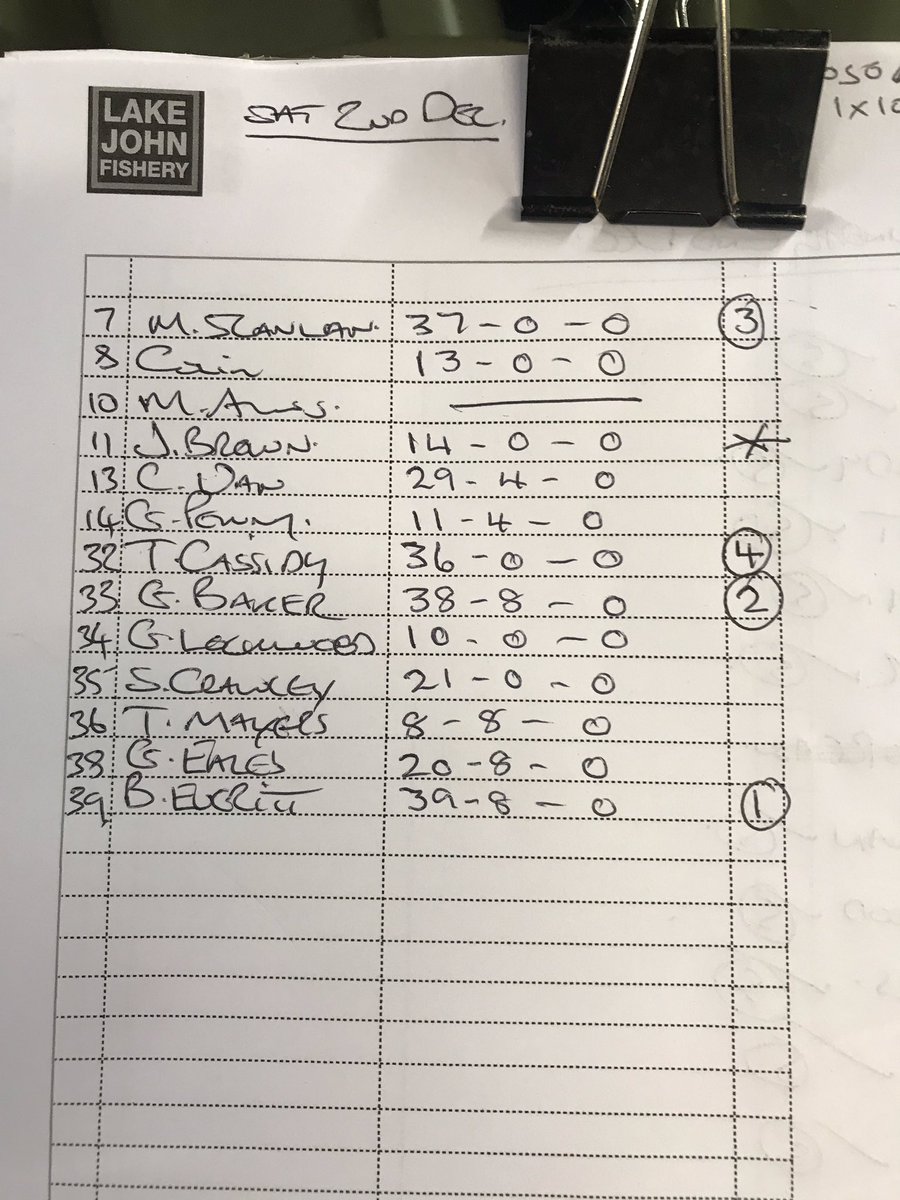 LAKE
JOHN
FISHERY
SAT 2ND DEC.
7 M. SCANLAN. 37-0-0 3
8 Coin 13-0-0
10 M.
11 J. BROWN. 14-0-0
13 C. DAN 29-4-0
14 G. 11-4-0
32 T. CASSIDY 36-0-0 4
33 G. BAKER 38-8-0 2
34 G. LOCKWOOD 10-0-0
35 S. CRAWLEY 21-0-0
36 T. MAYERS 8-8-0
38 G. EALES 20-8-0
39 B. EVERITT 39-8-0 1